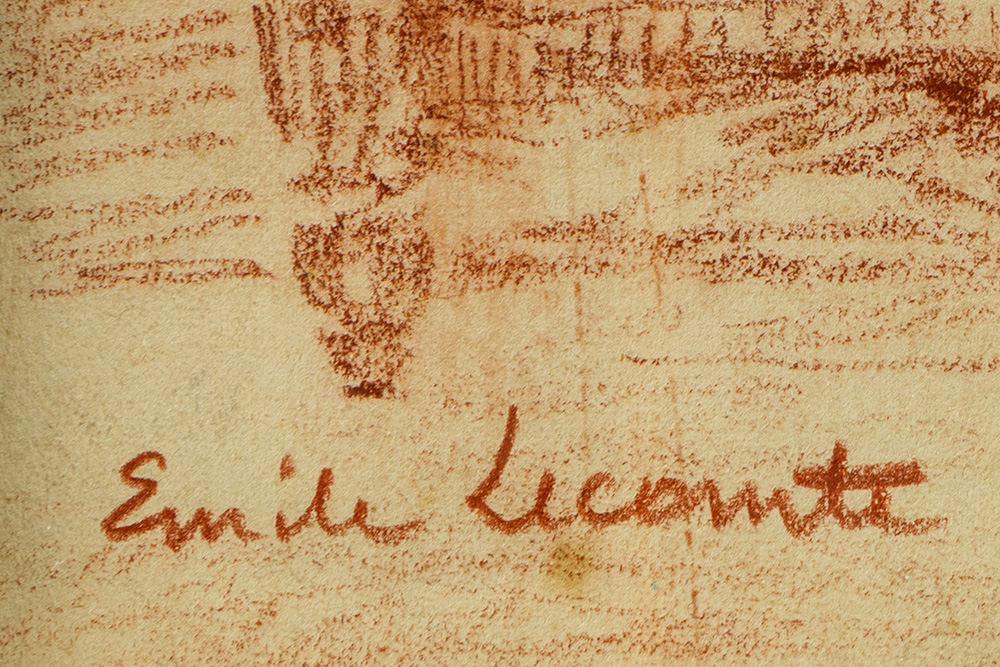 Emile Lecomte